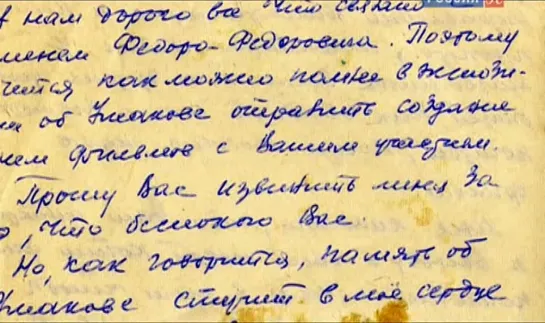 нам дорого все что связано
РОССИЯ К
именем Федора Федоровича. Поэтому
как можно полнее в
об Ушакове отразить создание
фильмов с Вашим участием.
Прошу Вас извинить меня за
что беспокою Вас.
Но, как говорится, память об
Ушакове стучит в мое сердце